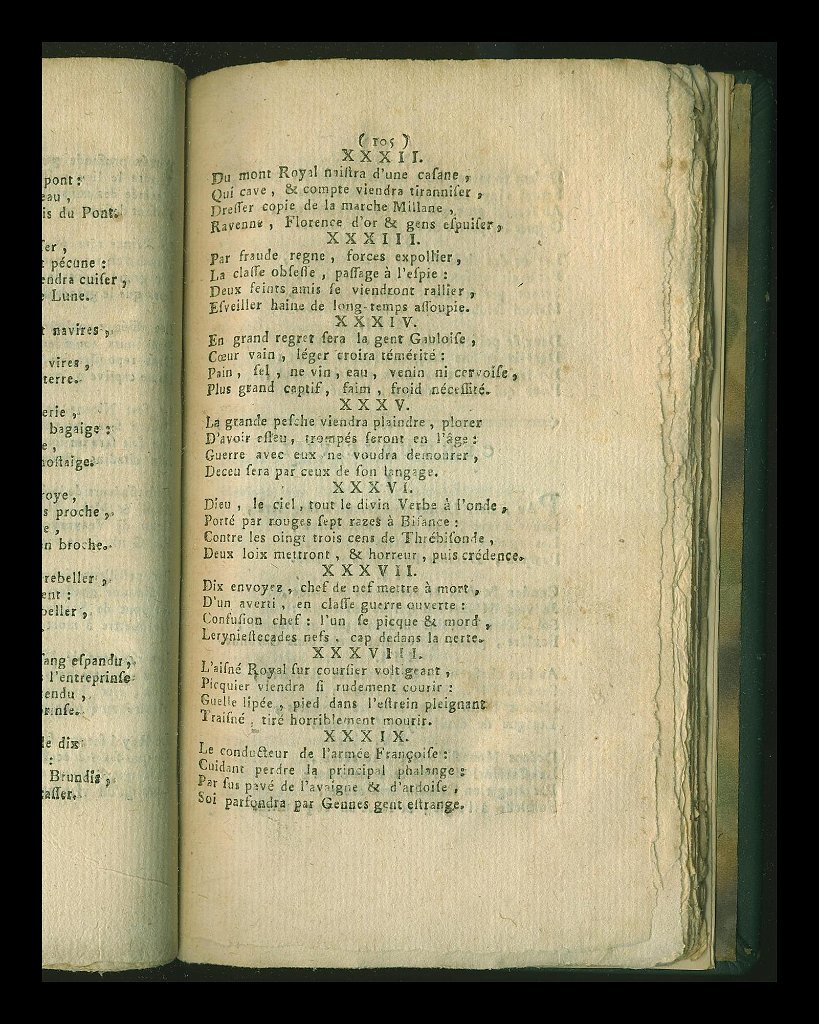 pont:
eau,
is du Pont.
ſer,
pécune :
endra cuiſer,
Lune.
navires,
vires,
terre.
erie,
bagaige :
e,
noſtaige.
roye,
s proche,
e,
n broche.
rebeller,
ent :
beller,
ſang eſpandu,
l'entreprinſe
endu,
prinſe.
le dix
:
Brundis,
caſſer.
( 105 )
XXXII.
Du mont Royal naiſtra d'une caſane,
Qui cave, & compte viendra tiranniſer,
Dreſſer copie de la marche Millane,
Ravenne, Florence d'or & gens eſpuiſer,
XXXIII.
Par fraude regne, forces expollier,
La claſſe obſeſſe, paſſage à l'eſpie :
Deux feints amis ſe viendront rallier,
Eſveiller haine de long-temps aſſoupie.
XXXIV.
En grand regret ſera la gent Gauloiſe,
Cœur vain, léger croira témérité :
Pain, ſel, ne vin, eau, venin ni cervoiſe,
Plus grand captif, faim, froid néceſſité.
XXXV.
La grande peſche viendra plaindre, plorer
D'avoir eſleu, trompés ſeront en l'âge :
Guerre avec eux ne voudra demourer,
Deceu ſera par ceux de ſon langage.
XXXVI.
Dieu, le ciel, tout le divin Verbe à l'onde,
Porté par rouges ſept razes à Biſance :
Contre les oingt trois cens de Thrébiſonde,
Deux loix mettront, & horreur, puis crédence.
XXXVII.
Dix envoyez, chef de nef mettre à mort,
D'un averti, en claſſe guerre ouverte :
Confuſion chef : l'un ſe picque & mord,
Lerynleſtecades nefs, cap dedans la nerte.
XXXVIII.
L'aiſné Royal ſur courſier voltigeant,
Picquier viendra ſi rudement courir :
Guelle lipée, pied dans l'eſtrein pleignant
Traiſné, tiré horriblement mourir.
XXXIX.
Le conducteur de l'armée Françoiſe :
Cuidant perdre la principal phalange :
Par ſus pavé de l'avaigne & d'ardoiſe,
Soi parfondra par Gennes gent eſtrange.